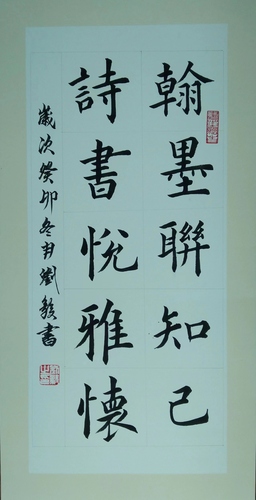 翰墨聯知己
詩書悅雅懷
歲次癸卯冬月劉毅書